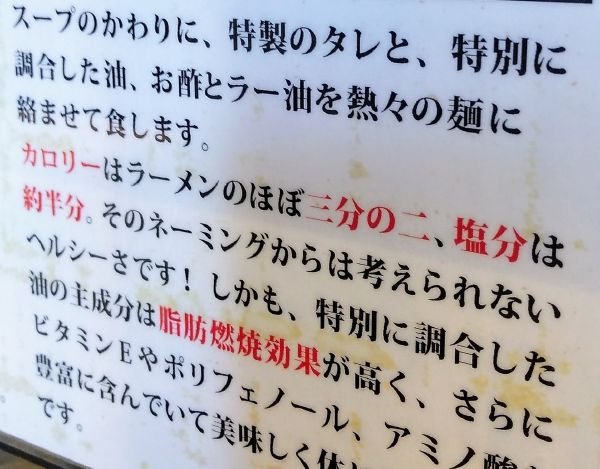 スープのかわりに、特製のタレと、特別に
調合した油、お酢とラー油を熱々の麺に
絡ませて食します。
カロリーはラーメンのほぼ三分の二、塩分は
約半分。そのネーミングからは考えられない
ヘルシーさです！しかも、特別に調合した
油の主成分は脂肪燃焼効果が高く、さらに
ビタミンEやポリフェノール、アミノ酸
豊富に含んでいて美味しく体
です。